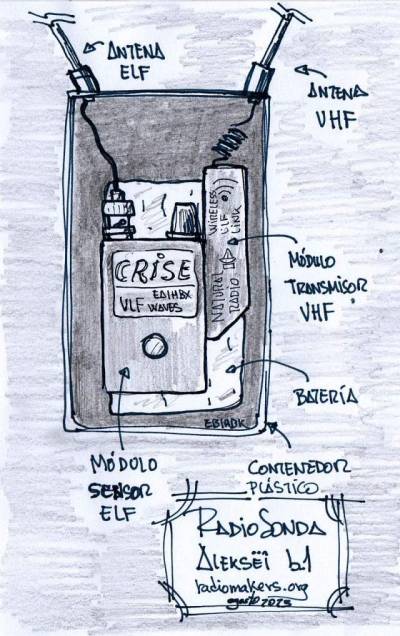 ANTENA
ELF
ANTENA
VHF
WIRELESS
ULF
LINK
NATURAL
RADIO
CRISE
EA1HBX
VLF WAVES
MÓDULO
TRANSMISOR
VHF
BATERÍA
EB1ADK
MÓDULO
SENSOR
ELF
CONTENEDOR
PLÁSTICO
RADIOSONDA
ALEKSËÏ b.1
radiomakers.org
2023